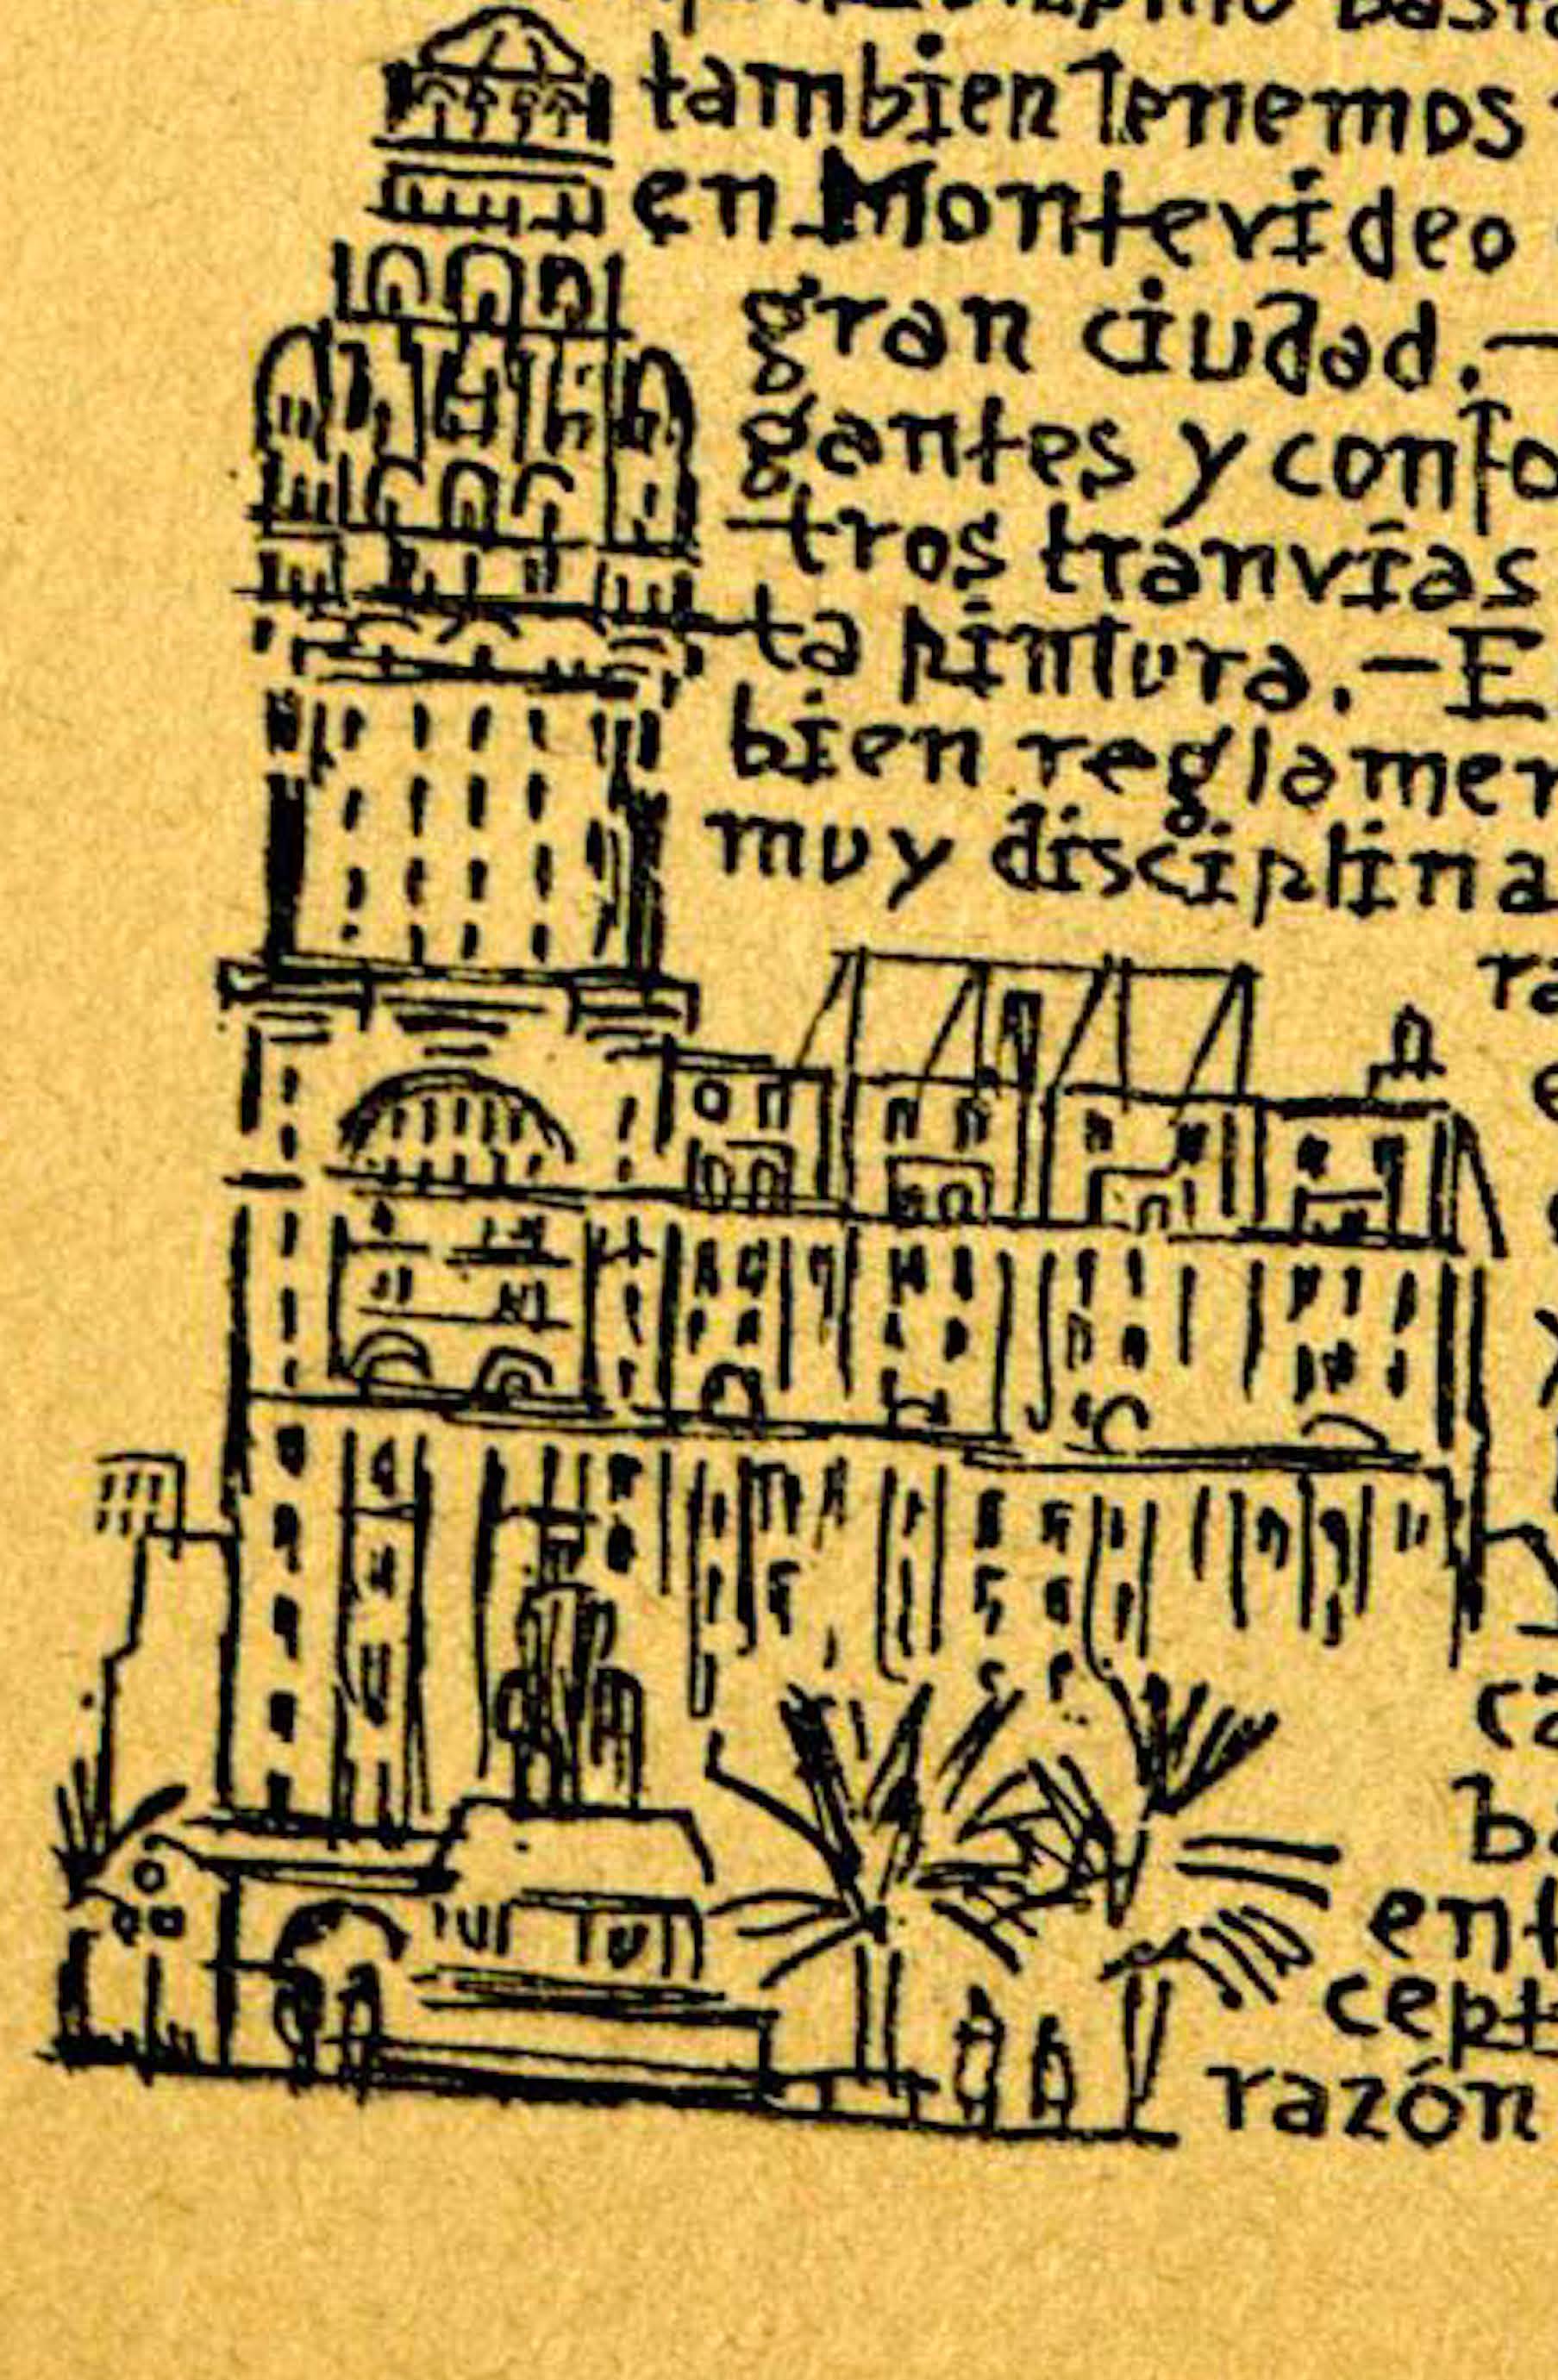 tambien tenemos
en Montevideo
gran ciudad.—
gantes y confo
tros tranvías
ta pintura.—E
bien reglamen
muy disciplina
ra
e
y
ca
b
ent
cept
razón